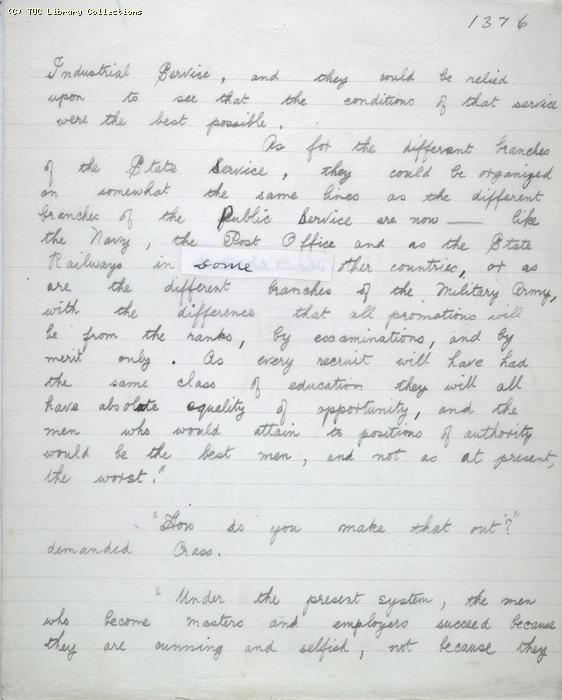 (C) TUC Library Collections
1376
Industrial Service, and they could be relied
upon to see that the conditions of that service
were the best possible.
As for the different branches
of the State Service, they could be organized
on somewhat the same lines as the different
branches of the Public Service are now — like
the Navy, the Post Office and as the State
Railways in some other countries, or as
are the different branches of the Military Army,
with the difference that all promotions will
be from the ranks, by examinations, and by
merit only. As every recruit will have had
the same class of education they will all
have absolute equality of opportunity, and the
men who would attain to positions of authority
would be the best men, and not as at present,
the worst."
"How do you make that out?"
demanded Crass.
"Under the present system, the men
who become masters and employers succeed because
they are cunning and selfish, not because they